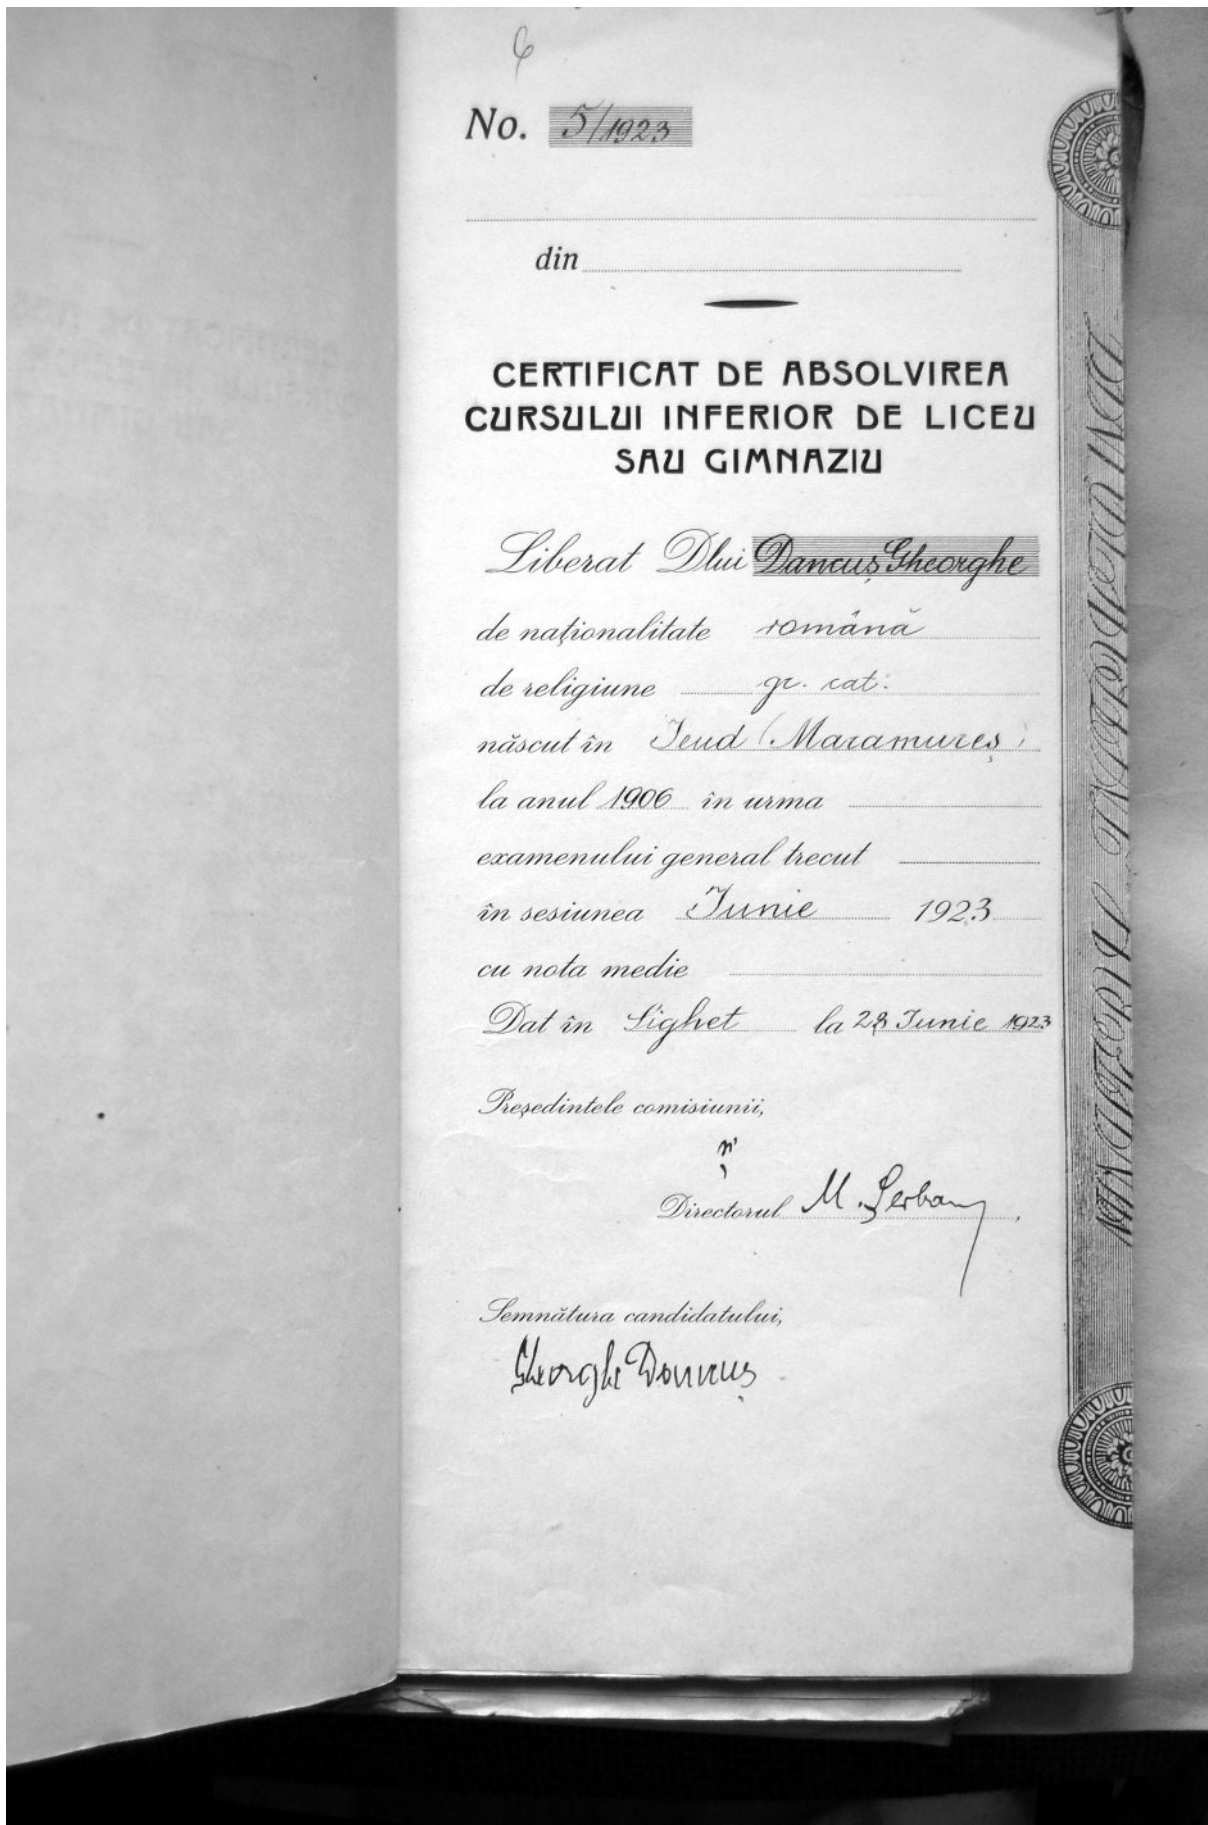 6
No. 5/1923
din
CERTIFICAT DE ABSOLVIREA
CURSULUI INFERIOR DE LICEU
SAU GIMNAZIU
Liberat Dlui Dancuș Gheorghe
de naționalitate română
de religiune gr. cat.
născut în Ieud (Maramureș)
la anul 1906 în urma
examenului general trecut
în sesiunea Iunie 1923
cu nota medie
Dat în Sighet la 28 Iunie 1923
Președintele comisiunii,
Directorul M. Șerban
Semnătura candidatului,
Gheorghe Dancuș